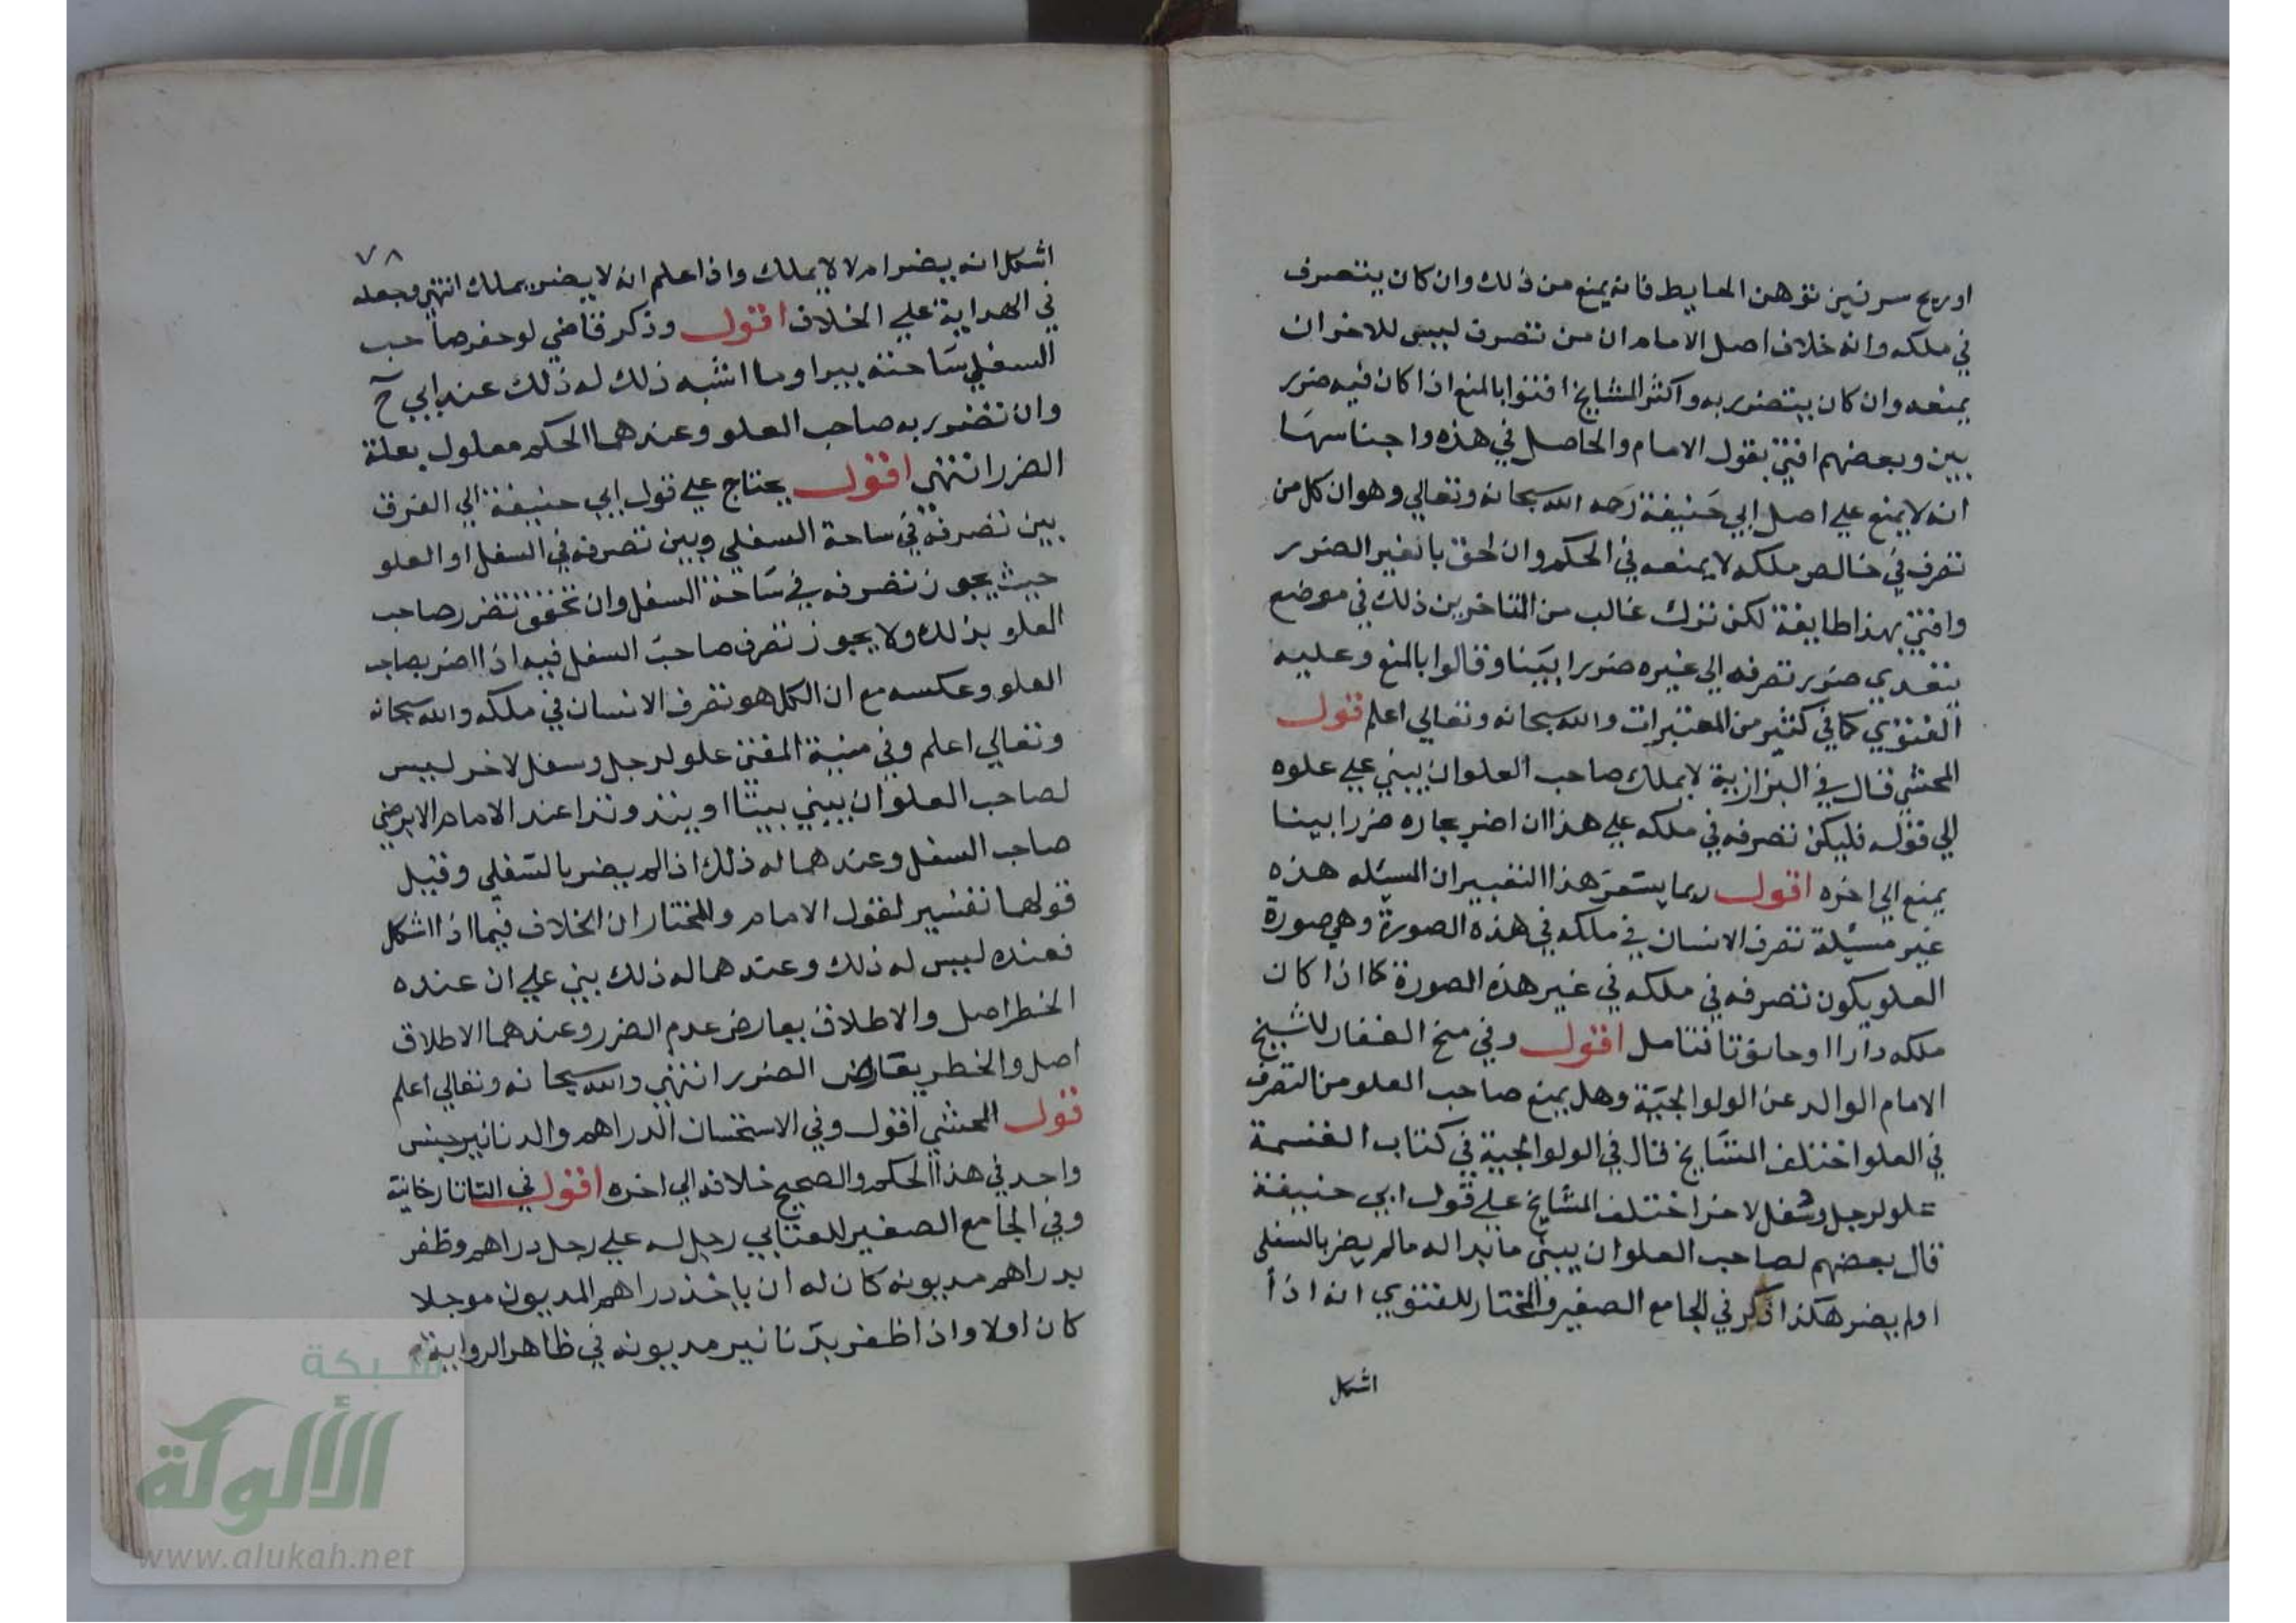 او ريح سرقين توهن الحايط فانه يمنع من ذلك وان كان يتصرف
في ملكه وانه خلاف اصل الامام ان من تصرف ليس للاخر ان
يمنعه وان كان يتضرر به واكثر المشايخ افتوا بالمنع اذا كان فيه ضرر
بين وبعضهم افتى بقول الامام والحاصل في هذه واجناسها
انه لا يمنع على اصل ابي حنيفة رحمه الله سبحانه وتعالي وهو ان كل من
تصرف في خالص ملكه لا يمنعه في الحكم وان لحق بالغير الضرر
وافتى بهذا طايفة لكن ترك غالب من المتاخرين ذلك في موضع
يتعدي ضرر تصرفه الى غيره ضررا بينا وقالوا بالمنع وعليه
الفتوي كما في كثير من المعتبرات والله سبحانه وتعالي اعلم قول
المحشي قال في البزازية لا يملك صاحب العلو ان يبني علي علوه
الي قوله فليكن تصرفه في ملكه علي هذا ان اضر بجاره ضررا بينا
يمنع الي اخره اقول ربما يشعر هذا التعبير ان المسيله هذه
غير مسيلة تصرف الانسان في ملكه في هذه الصورة وهي صورة
العلو يكون تصرفه في ملكه في غير هذه الصورة كما اذا كان
ملكه دارا او حانوتا فتامل اقول وفي منح الغفار للشيخ
الامام الوالد عن الولوالجية وهل يمنع صاحب العلو من التصرف
في العلو اختلف المشايخ قال في الولوالجية في كتاب القسمة
علو لرجل وسفل لاخر اختلف المشايخ علي قول ابي حنيفة
قال بعضهم لصاحب العلو ان يبني ما بدا له ما لم يضر بالسفلي
اولم يضر هكذا ذكر في الجامع الصغير والمختار للفتوي انه اذا
اشكل
٧٨
اشكل انه يضر ام لا لا يملك واذا علم انه لا يضر يملك انتهى وجعله
في الهداية علي الخلاف اقول وذكر قاضي لو حفر صاحب
السفلي ساحته بيرا وما اشبه ذلك له ذلك عند ابي ح
وان تضرر به صاحب العلو وعندهما الحكم معلول بعلة
الضرر انتهى اقول يحتاج علي قول ابي حنيفة الي الفرق
بين تصرفه في ساحة السفلي وبين تصرفه في السفل او العلو
حيث يجوز تصرفه في ساحة السفل وان تحقق تضرر صاحب
العلو بذلك ولا يجوز تصرف صاحب السفل فيه اذا اضر بصاحب
العلو وعكسه مع ان الكل هو تصرف الانسان في ملكه والله سبحانه
وتعالي اعلم وفي منية المفتي علو لرجل وسفل لاخر ليس
لصاحب العلو ان يبني بيتا او يتد وتدا عند الامام الا برضي
صاحب السفل وعندهما له ذلك اذا لم يضر بالسفلي وقيل
قولهما تفسير لقول الامام والمختار ان الخلاف فيما اذا اشكل
فعنده ليس له ذلك وعندهما له ذلك بني علي ان عنده
الخطر اصل والاطلاق يعارض عدم الضرر وعندهما الاطلاق
اصل والخطر يعارض الضرر انتهى والله سبحانه وتعالي اعلم
قول المحشي اقول وفي الاستحسان الدراهم والدنانير جنس
واحد في هذا الحكم والصحيح خلافه الي اخره اقول في التاتارخانية
وفي الجامع الصغير للعتابي رجل له علي رجل دراهم وظفر
بدراهم مديونه كان له ان ياخذ دراهم المديون موجلا
كان اولا واذا ظفر بدنانير مديونه في ظاهر الرواية
شبكة
الألوكة
www.alukah.net